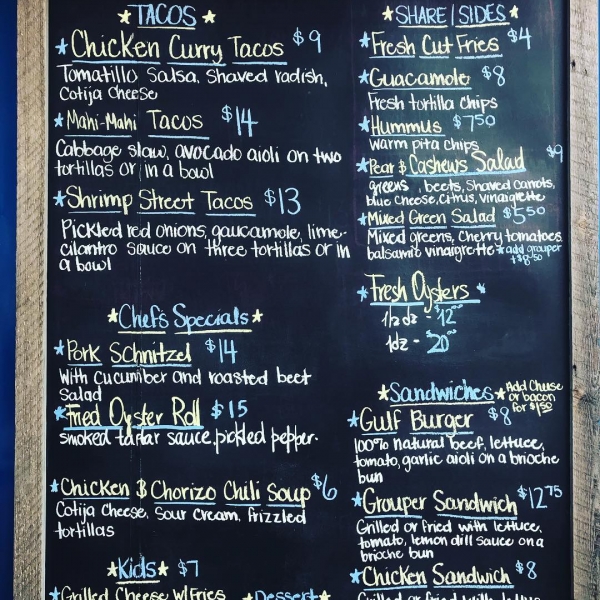 TACOS
Chicken Curry Tacos $9
Tomatillo Salsa, Shaved radish,
Cotija Cheese
Mahi-Mahi Tacos $14
Cabbage slaw, avocado aioli on two
tortillas or in a bowl
Shrimp Street Tacos $13
Pickled red onions, guacamole, lime-
cilantro sauce on three tortillas or in
a bowl
Chef's Specials
Pork Schnitzel $14
With cucumber and roasted beet
Salad
Fried Oyster Roll $15
smoked tartar sauce, pickled pepper.
Chicken & Chorizo Chili Soup $6
Cotija cheese, sour cream, frizzled
tortillas
Kids $7
Grilled Cheese w/Fries
Dessert
SHARE | SIDES
Fresh Cut Fries $4
Guacamole $8
Fresh tortilla chips
Hummus $7.50
warm pita chips
Pear & Cashews Salad $9
greens, beets, Shaved carrots,
blue cheese, citrus, vinaigrette
Mixed Green Salad $5.50
Mixed greens, Cherry tomatoes,
balsamic vinaigrette *add grouper
+$8.50
Fresh Oysters
1/2 dz - $12.00
1dz - $20.00
Sandwiches
Add Cheese
or bacon
for $1.50
Gulf Burger $8
100% natural beef, lettuce,
tomato, garlic aioli on a brioche
bun
Grouper Sandwich $12.75
Grilled or fried with lettuce,
tomato, lemon dill sauce on a
brioche bun
Chicken Sandwich $8
Grilled or fried w/ lettuce